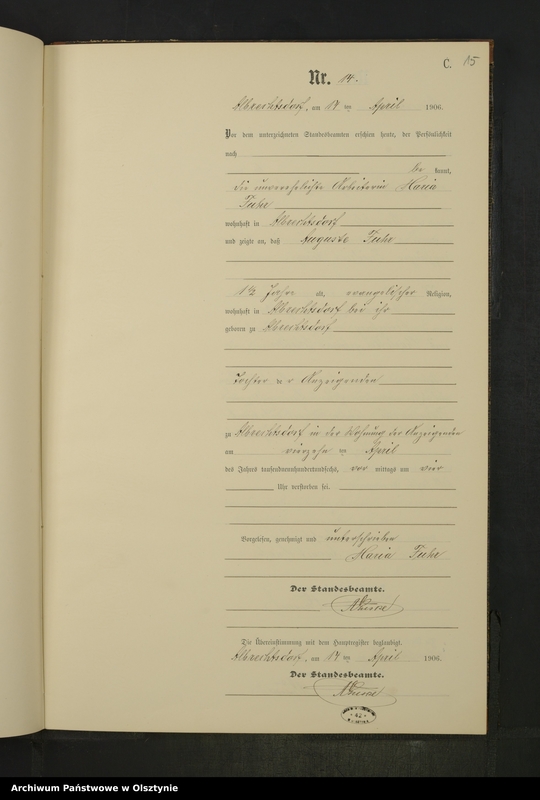 C. 15
Nr. 14.
Albrechtsdorf, am 17 ten April 1906.
Vor dem unterzeichneten Standesbeamten erschien heute, der Persönlichkeit
nach
be kannt,
die unverehelichte Arbeiterin Maria
Fuhr
wohnhaft in Albrechtsdorf
und zeigte an, daß Auguste Fuhr
1½ Jahre alt, evangelischer Religion,
wohnhaft in Albrechtsdorf bei ihr
geboren zu Albrechtsdorf
Tochter der Anzeigenden
zu Albrechtsdorf in der Wohnung der Anzeigenden
am vierzehn ten April
des Jahres tausendneunhundertundsechs, vor mittags um vier
Uhr verstorben sei.
Vorgelesen, genehmigt und unterschrieben
Maria Fuhr
Der Standesbeamte.
Die Übereinstimmung mit dem Hauptregister beglaubigt.
Albrechtsdorf, am 17 ten April 1906.
Der Standesbeamte.
Archiwum Państwowe w Olsztynie